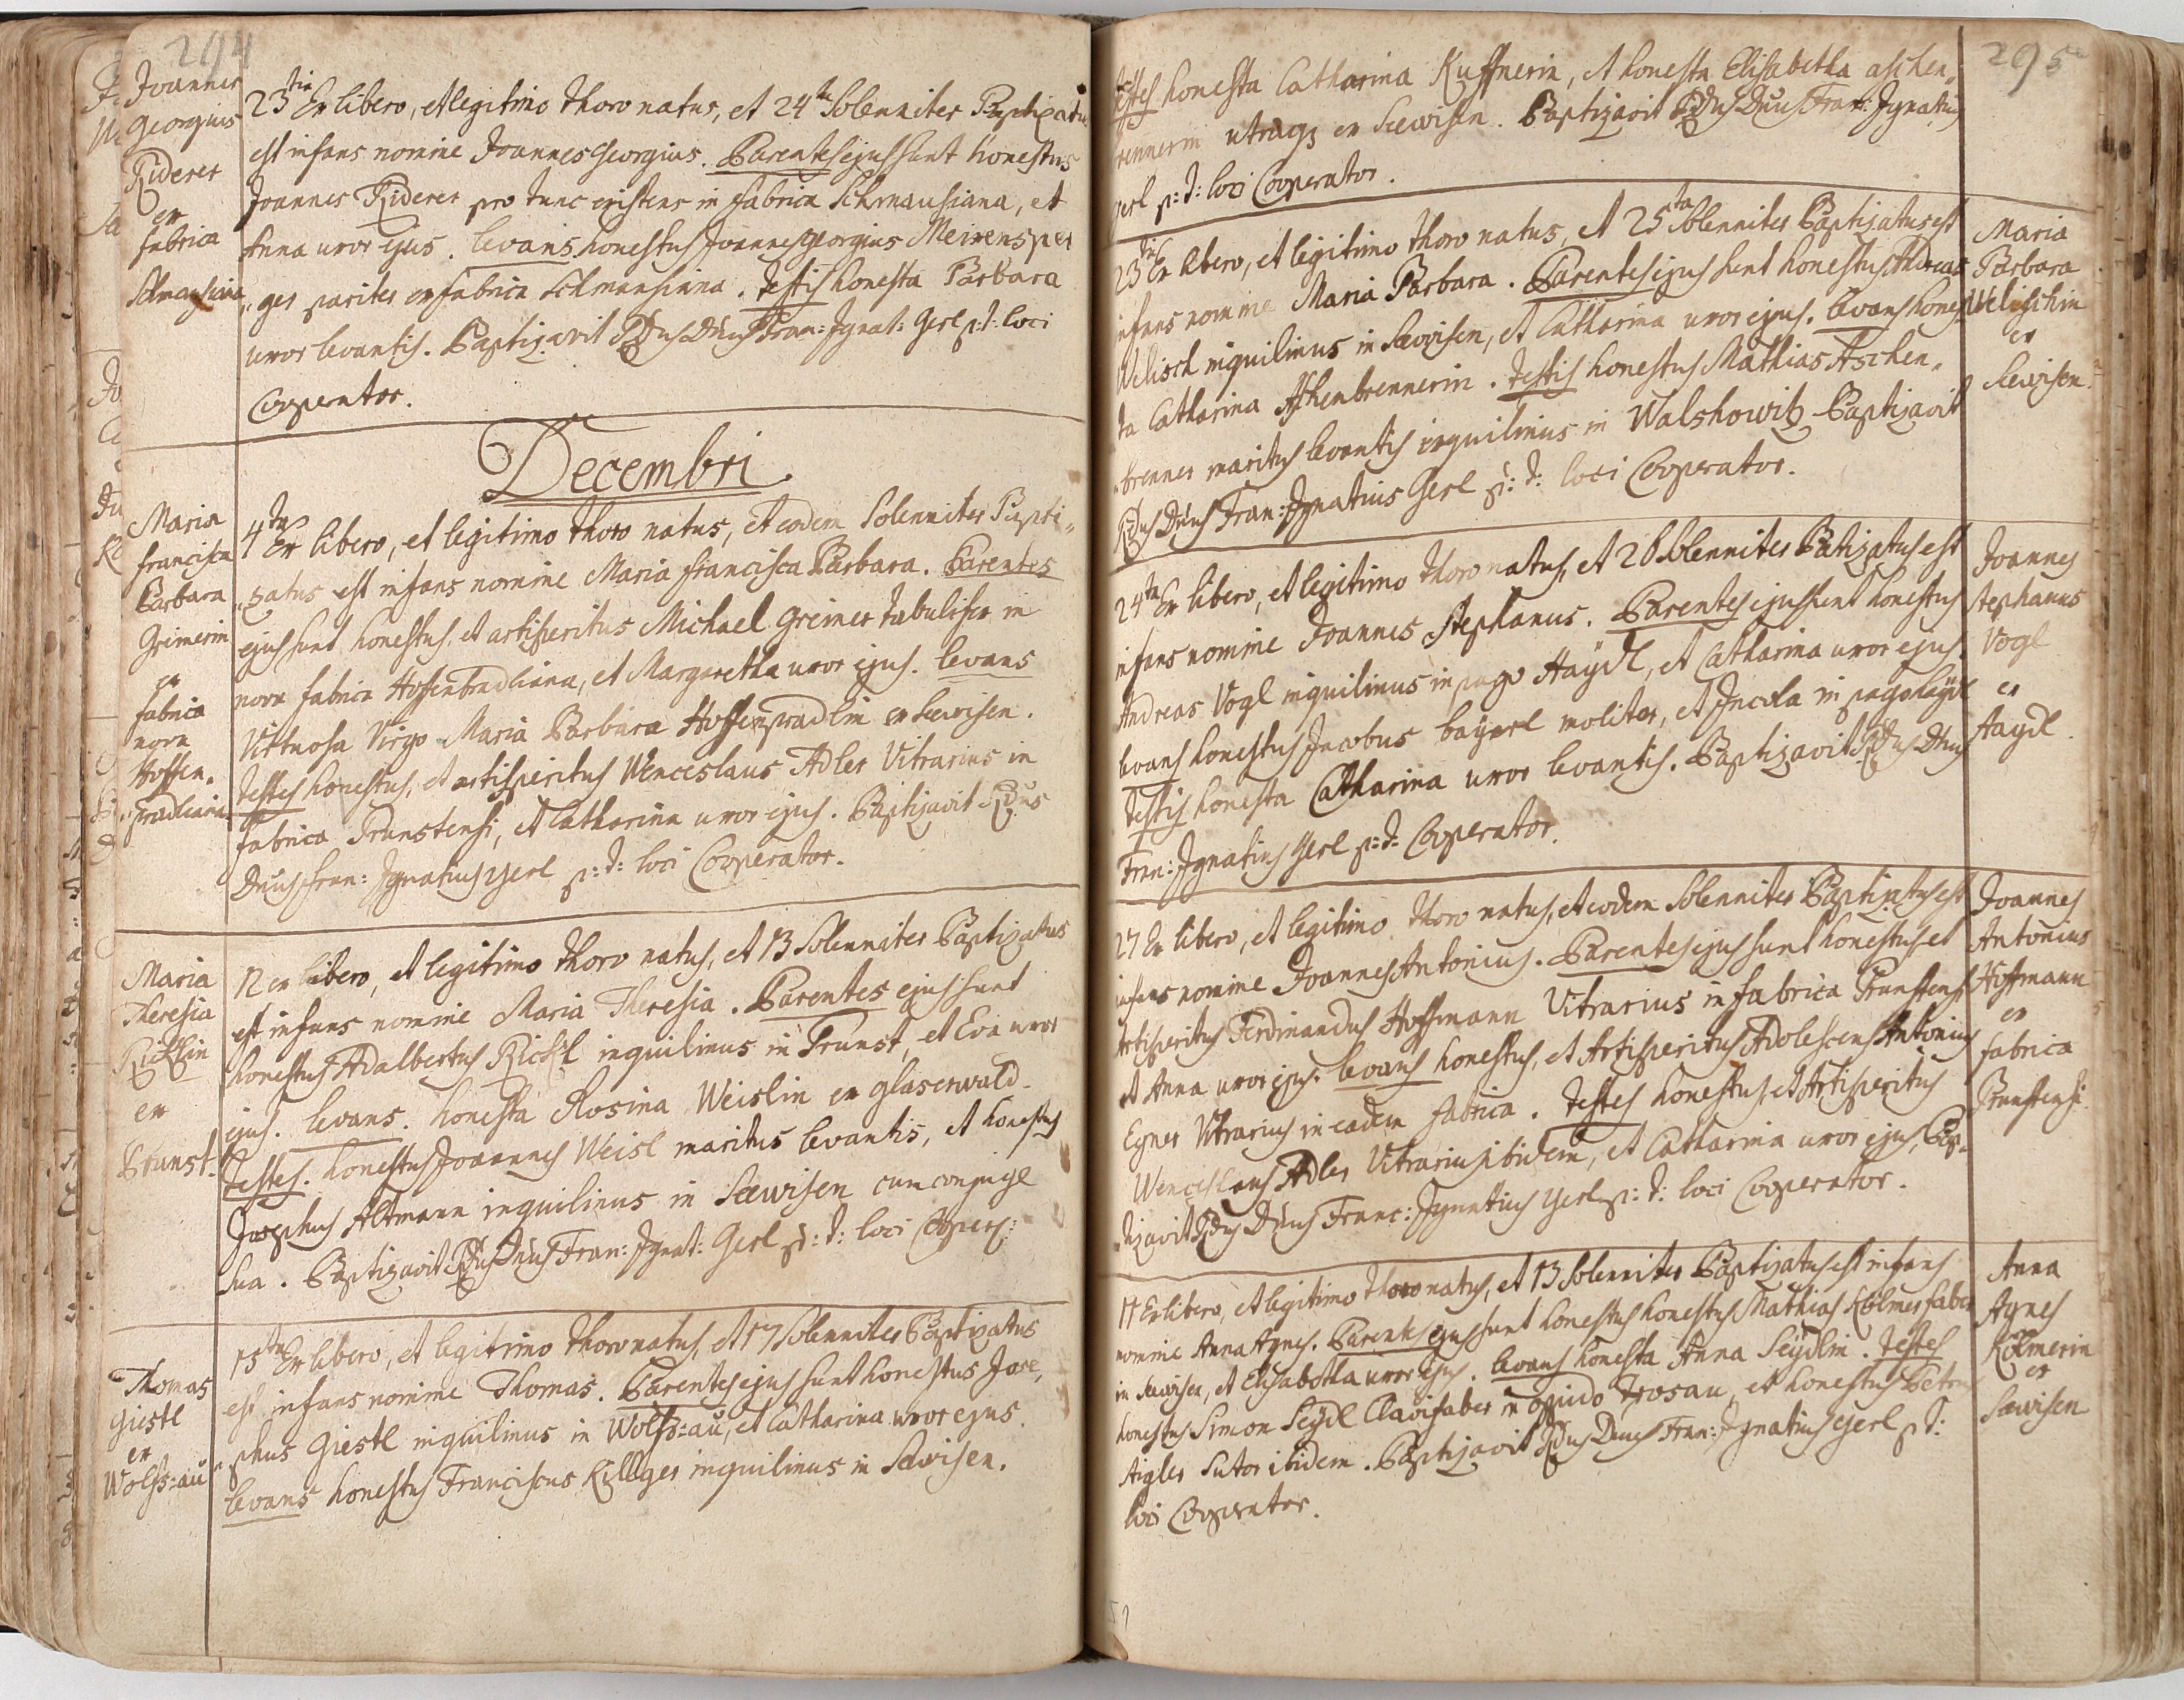 294
Joannes
Georgius
Riderer
ex
fabrica
Schmausiana
23tia Ex libero, et legitimo thoro natus, et 24ta Solenniter Baptizatus
est infans nomine Joannes Georgius. Parentes ejus sunt honestus
Joannes Riderer pro tunc existens in fabrica Schmausiana, et
Anna uxor ejus. levans honestus Joannes Georgius Meixensper
„ger pariter ex fabrica Schmausiana. testis honesta Barbara
uxor levantis. Baptizavit Rdus Dnus Fran: Ignat: Gerl p: t: loci
Cooperator.
Decembri.
Maria
francisca
Barbara
Greinerin
ex
fabrica
nova
Hoffen„
„pradliana
4ta Ex libero, et legitimo thoro natus, et eodem Solenniter Bapti„
„zatus est infans nomine Maria francisca Barbara. Parentes
ejus sunt honestus, et artisperitus Michael Greiner tabulifex in
nova fabrica Hoffenbradliana, et Margaretha uxor ejus. levans
Virtuosa Virgo Maria Barbara Hoffenpradlin ex Seewisen.
testes honestus, et artisperitus Wenceslaus Adler Vitrarius in
fabrica Prunstensi, et Catharina uxor ejus. Baptizavit Rdus
Dnus Fran: Ignatius Gerl p: t: loci Cooperator.
Maria
Theresia
Ricklin
ex
Brunst.
12 ex libero, et legitimo thoro natus, et 13 Solenniter Baptizatus
est infans nomine Maria Theresia. Parentes ejus sunt
honestus Adalbertus Rickl inquilinus in Prunst, et Eva uxor
ejus. levans. honesta Rosina Weislin ex Glaserwald.
testes. honestus Joannes Weisl maritus levantis, et honestus
Josephus Altmann inquilinus in Seewisen cum conjuge
sua. Baptizavit Rdus Dnus Fran: Ignat: Gerl p: t: loci Cooper:
Thomas
Giestl
ex
Wolfs=au
15ta Ex libero, et legitimo thoro natus, et 17 Solenniter Baptizatus
est infans nomine Thomas. Parentes ejus sunt honestus Jose„
„phus Giestl inquilinus in Wolfs=au, et Catharina uxor ejus.
levans honestus Franciscus Killger inquilinus in Seewisen.
295
testes honesta Catharina Kuffnerin, et honesta Elisabetha aschen„
brennerin utraq3 ex Seewisen. Baptizavit Rdus Dnus Fran: Ignatius
Gerl p: t: loci Cooperator.
23tia Ex libero, et legitimo thoro natus, et 25ta Solenniter Baptizatus est
infans nomine Maria Barbara. Parentes ejus sunt honestus Andreas
Welisch inquilinus in Seewisen, et Catharina uxor ejus. levans hones
ta Catharina Aschenbrennerin. testis honestus Mathias Aschen„
„brenner maritus levantis inquilinus in Walshowitz Baptizavit
Rdus Dnus Fran: Ignatius Gerl p: t: loci Cooperator.
Maria
Barbara
Welischin
ex
Seewisen.
24ta Ex libero, et legitimo thoro natus, et 26 Solenniter Batizatus est
infans nomine Joannes Stephanus. Parentes ejus sunt honestus
Andreas Vogl inquilinus in pago Haydl, et Catharina uxor ejus.
levans honestus Jacobus bayerl molitor, et Incola in pago haydl
testis honesta Catharina uxor levantis. Baptizavit Rdus Dnus
Fran: Ignatius Gerl p: t: Cooperator.
Joannes
stephanus
Vogl
ex
Haydl.
27 Ex libero, et legitimo thoro natus, et eodem Solenniter Baptizatus est
infans nomine Joannes Antonius. Parentes ejus sunt honestus, et
Artisperitus Ferdinandus Hoffmann Vitrarius in fabrica Prunstensi
et Anna uxor ejus. levans honestus, et Artisperitus Adolescens Antonius
Egner Vitrarius in eadem fabrica. testes honestus, et Artisperitus
Wenceslaus Adler Vitrarius ibidem, et Catharina uxor ejus, Bap„
„tizavit Rdus Dnus Franc: Ignatius Gerl p: t: loci Cooperator.
Joannes
Antonius
Hoffmann
ex
fabrica
Prunstensi.
11 Ex libero, et legitimo thoro natus, et 13 Solenniter Baptizatus est infans
nomine Anna Agnes. Parentes ejus sunt honestus honestus Mathias Kölmer faber
in Seewisen, et Elisabetha uxor ejus. levans honesta Anna Seydlin. testes
honestus Simon Seydl Clavifaber in oppido Drosau, et honestus Petrus
Aigler Sutor ibidem. Baptizavit Rdus Dnus Fran: Ignatius Gerl p t:
loci Cooperator.
Anna
Agnes
Kölmerin
ex
Seewisen